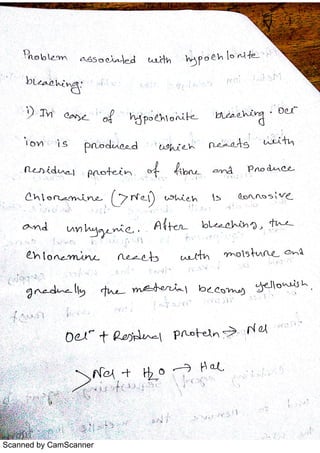 Problem associated with hypochlorite
bleaching:
i) In case of hypochlorite bleaching. Ocl⁻
ion is produced which reacts with
Residual protein of fibre and Produce
Chloramine (>Ncl) which is corrosive
and unhygenic. After bleaching, the
chloramine reacts with moisture and
gradually the material becomes yellowish.
Ocl⁻ + Residual protein → Ncl
>Ncl + H₂O → Hcl
Scanned by CamScanner